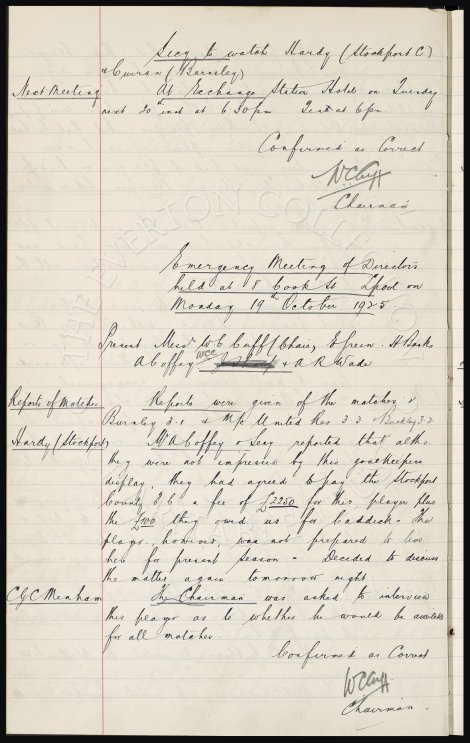 Secy to watch Hardy (Stockport C)
& Curran (Barnsley)
Next Meeting At Exchange Station Hotel on Tuesday
next 20th inst at 6.30pm Tea at 6pm.
Confirmed as Correct
WCCuff
Chairman
Emergency Meeting of Directors
held at 8 Cook St Lpool on
Monday 19th October 1925
Present Messrs W C Cuff (Chair, E Green. H Banks
A Coffey WCC & A R Wade
Reports of Matches Reports were given of the matches v
Burnley 3.1 & M/c United Res 3.3 Buckley 3.2
Hardy (Stockport) Mr A Coffey & Secy reported that altho.
they were not impressed by this goalkeepers
display, they had agreed to pay the Stockport
County F.C a fee of £2250 for this player plus
the £100 they owed us for Caddick. The
player, however, was not prepared to live
here for present season. Decided to discuss
the matter again tomorrow night
C G C Menham The Chairman was asked to interview
this player as to whether he would be available
for all matches.
Confirmed as Correct
WCCuff
Chairman.
THE EVERTON COLLECTION